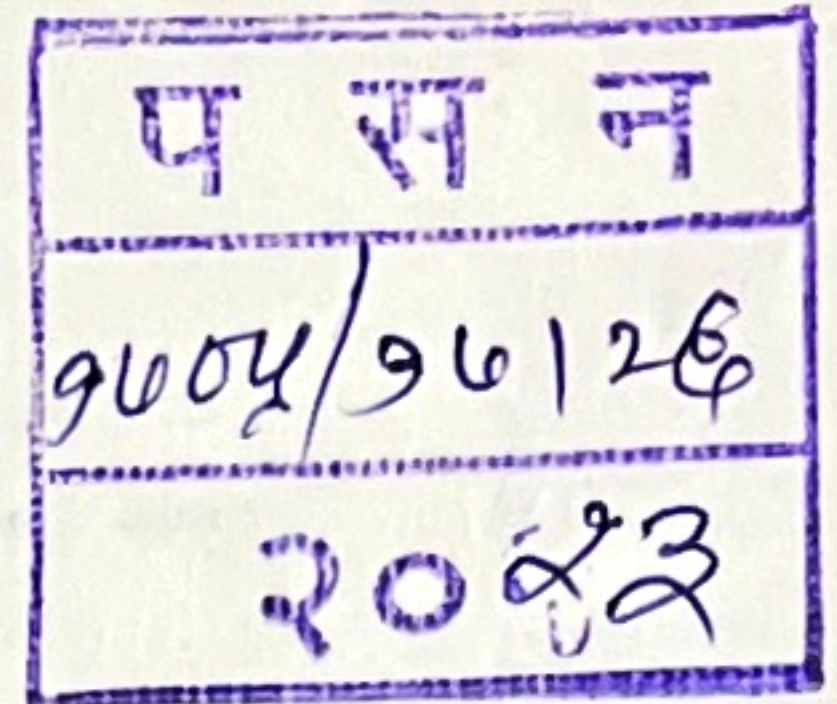 प स न
१७०५/१७|२६
२०२३